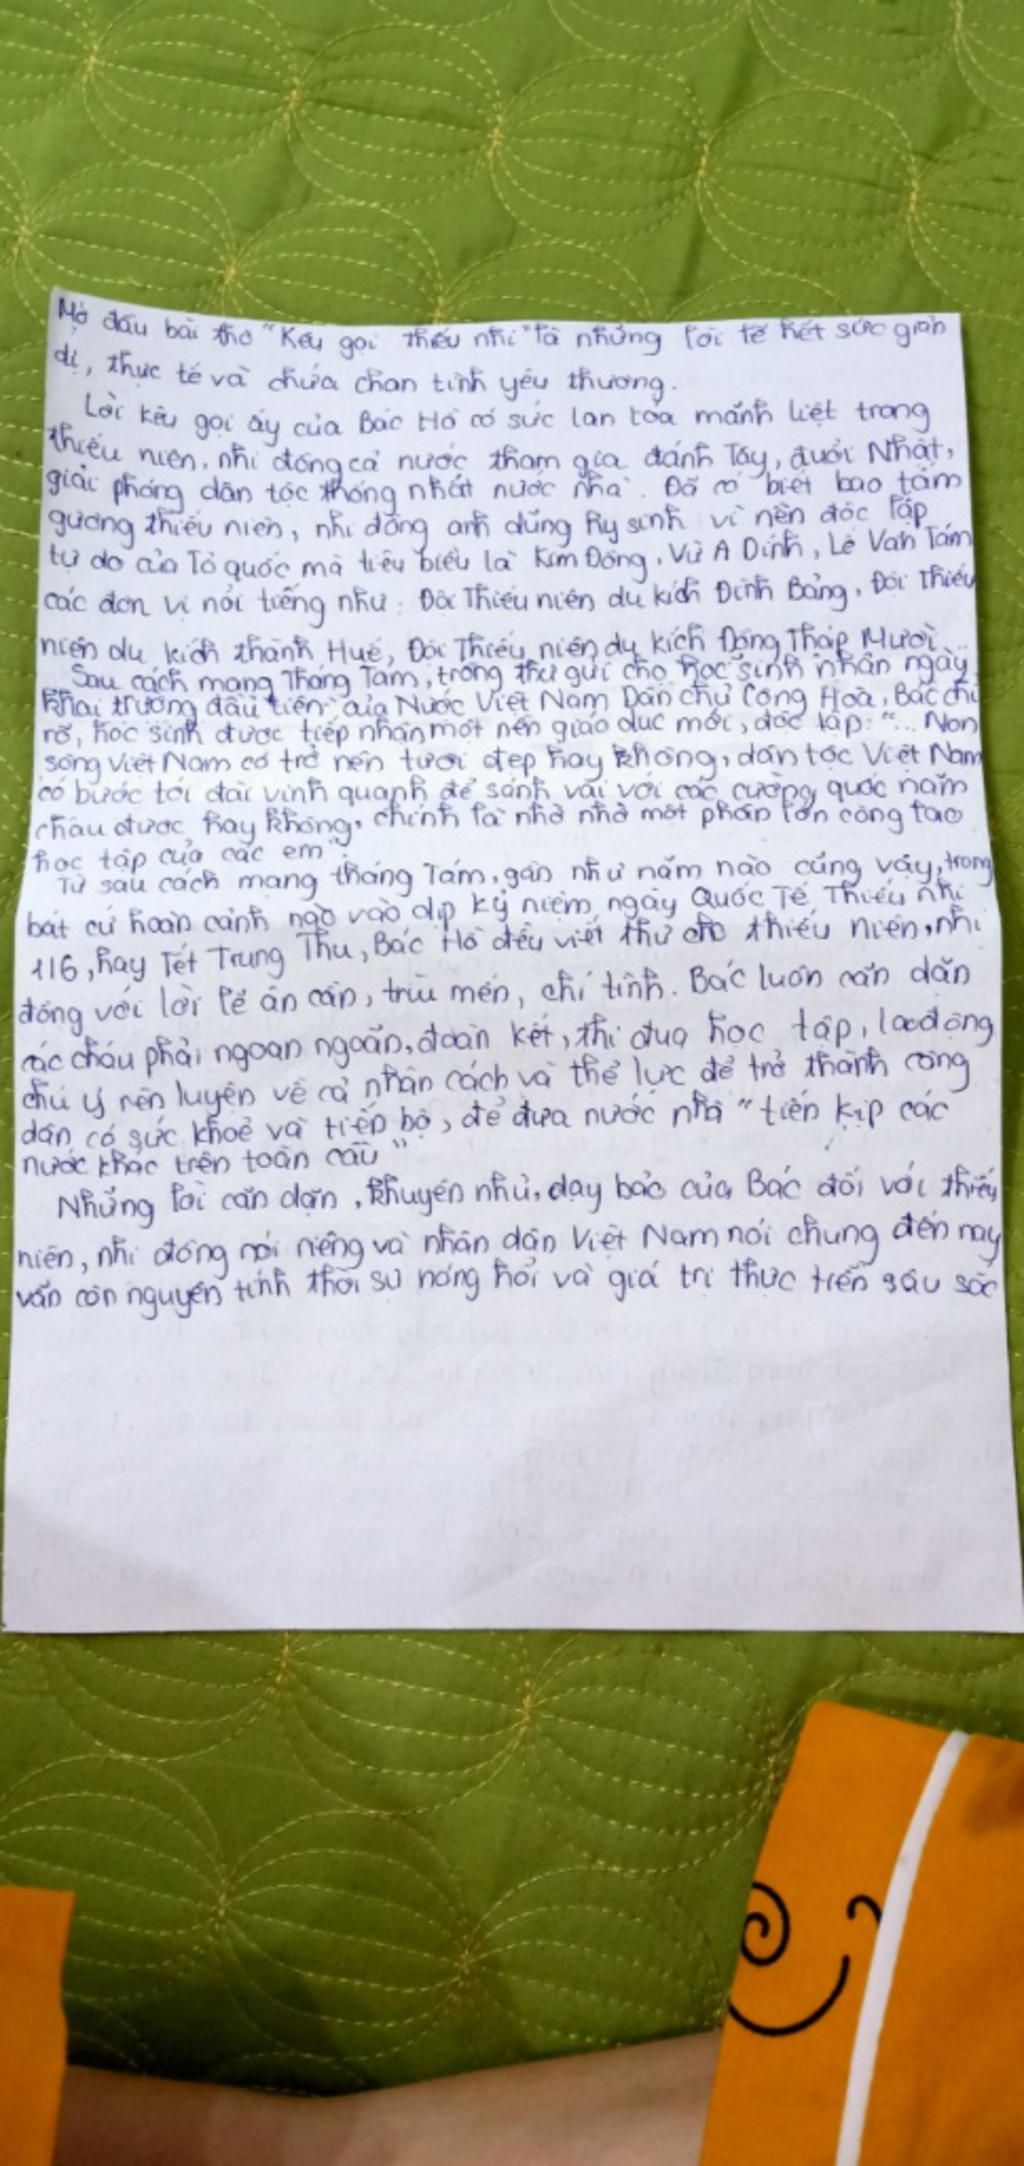 Mở đầu bài thơ "Kêu gọi thiếu nhi" là những lời lẽ hết sức giản
dị, thực tế và chứa chan tình yêu thương.
Lời kêu gọi ấy của Bác Hồ có sức lan toả mãnh liệt trong
thiếu niên, nhi đồng cả nước tham gia đánh Tây, đuổi Nhật,
giải phóng dân tộc thống nhất nước nhà. Đã có biết bao tấm
gương thiếu niên, nhi đồng anh dũng hy sinh vì nền độc lập
tự do của Tổ quốc mà tiêu biểu là Kim Đồng, Vừ A Dính, Lê Văn Tám
các đơn vị nổi tiếng như: Đội Thiếu niên du kích Đình Bảng, Đội Thiếu
niên du kích thành Huế, Đội Thiếu niên du kích Đồng Tháp Mười...
Sau cách mạng Tháng Tám, trong thư gửi cho học sinh nhân ngày
khai trường đầu tiên của Nước Việt Nam Dân chủ Cộng Hoà, Bác chỉ
rõ, học sinh được tiếp nhận một nền giáo dục mới, độc lập: "... Non
sông Việt Nam có trở nên tươi đẹp hay không, dân tộc Việt Nam
có bước tới đài vinh quanh để sánh vai với các cường quốc năm
châu được hay không, chính là nhờ nhờ một phần lớn công lao
học tập của các em".
Từ sau cách mạng tháng Tám, gần như năm nào cũng vậy, trong
bất cứ hoàn cảnh ngào vào dịp kỷ niệm ngày Quốc Tế Thiếu nhi
1/6, hay Tết Trung Thu, Bác Hồ đều viết thư cho thiếu niên, nhi
đồng với lời lẽ ân cần, trìu mến, chí tình. Bác luôn căn dặn
các cháu phải ngoan ngoãn, đoàn kết, thi đua học tập, lao động
chú ý rèn luyện về cả nhân cách và thể lực để trở thành công
dân có sức khoẻ và tiến bộ, để đưa nước nhà "tiến kịp các
nước khác trên toàn cầu"
Những lời căn dặn, khuyên nhủ, dạy bảo của Bác đối với thiếu
niên, nhi đồng nói riêng và nhân dân Việt Nam nói chung đến nay
vẫn còn nguyên tính thời sự nóng hổi và giá trị thực tiễn sâu sắc